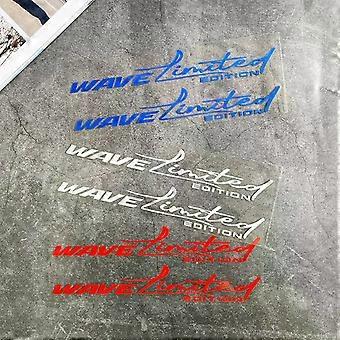 WAVE Limited
EDITION
WAVE Limited
EDITION
WAVE Limited
EDITION
WAVE Limited
EDITION
WAVE Limited
EDITION
WAVE Limited
EDITION